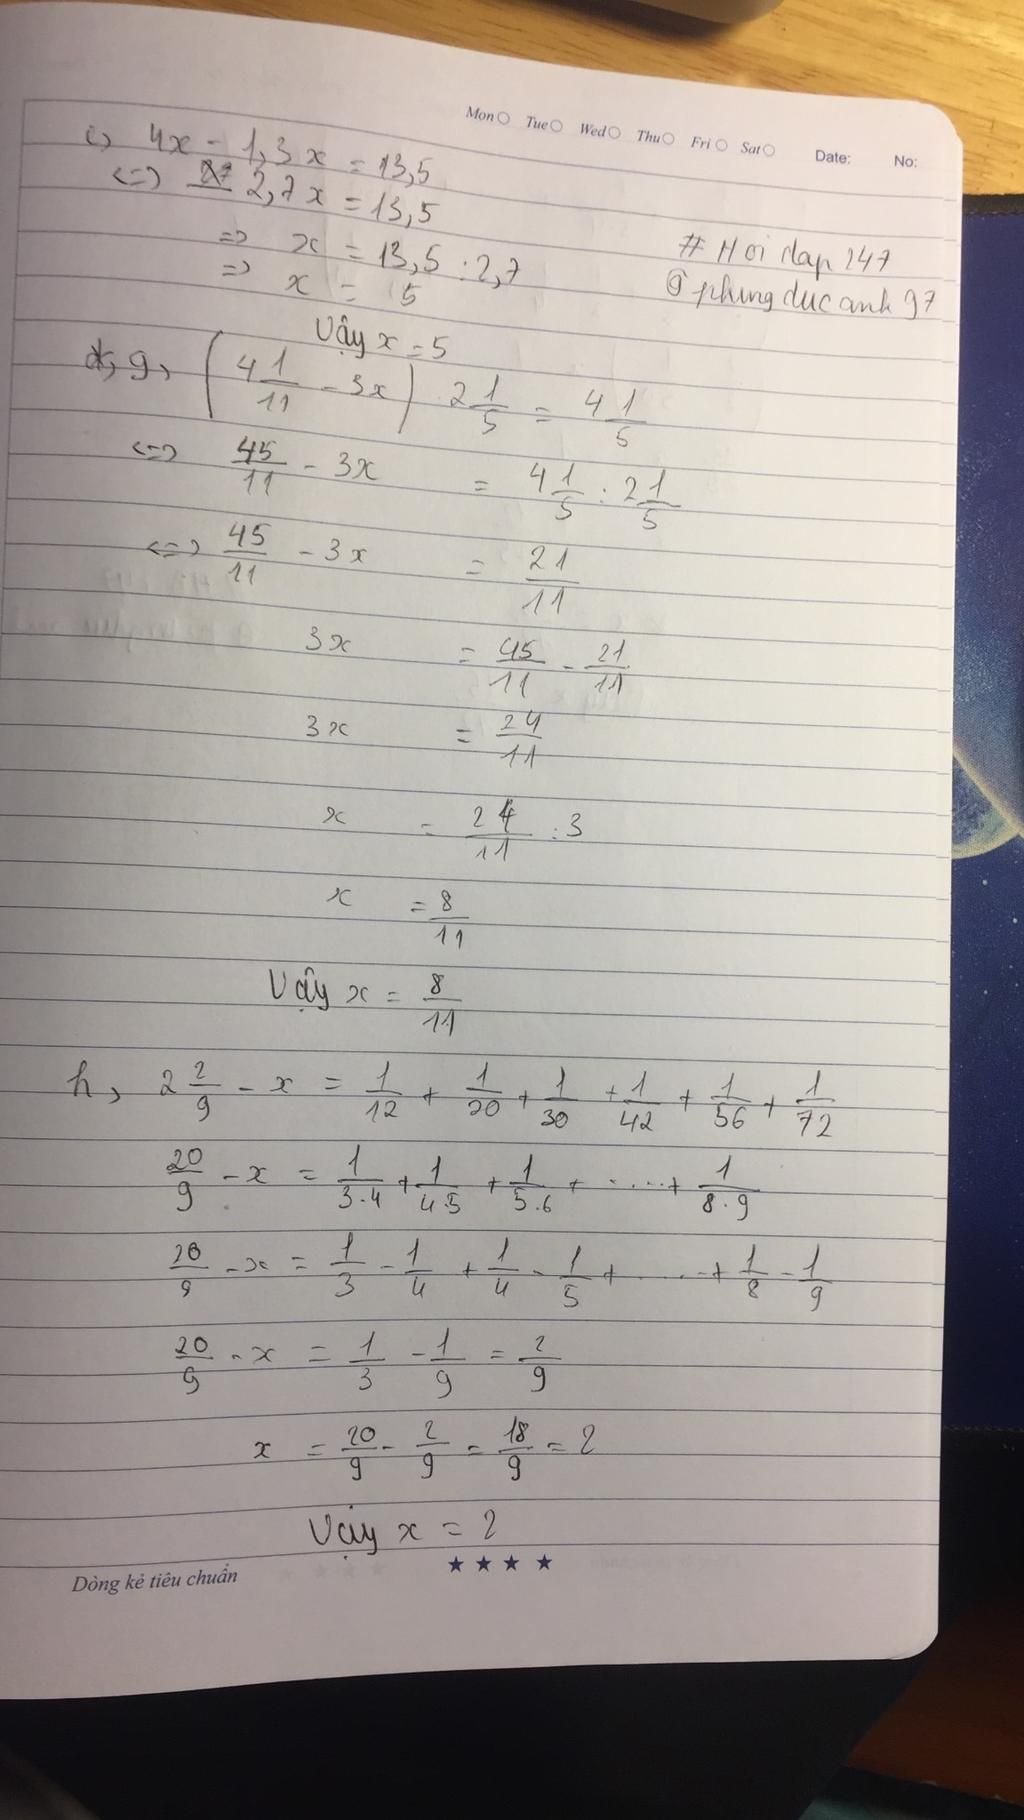 Mon Tue Wed Thu Fri Sat Date: No:
c) 4x - 1,3x = 13,5
<=> 2,7x = 13,5
=> x = 13,5 : 2,7
=> x = 5
# Hoi dap 247
@ phungducanh97
Vậy x = 5
g, (4 1/11 - 3x) 2 1/5 = 4 1/5
<=> 45/11 - 3x = 4 1/5 : 2 1/5
<=> 45/11 - 3x = 21/11
3x = 45/11 - 21/11
3x = 24/11
x = 24/11 : 3
x = 8/11
Vậy x = 8/11
h, 2 2/9 - x = 1/12 + 1/20 + 1/30 + 1/42 + 1/56 + 1/72
20/9 - x = 1/3.4 + 1/4.5 + 1/5.6 + ..... + 1/8.9
20/9 - x = 1/3 - 1/4 + 1/4 - 1/5 + ..... + 1/8 - 1/9
20/9 - x = 1/3 - 1/9 = 2/9
x = 20/9 - 2/9 = 18/9 = 2
Vậy x = 2
Dòng kẻ tiêu chuẩn